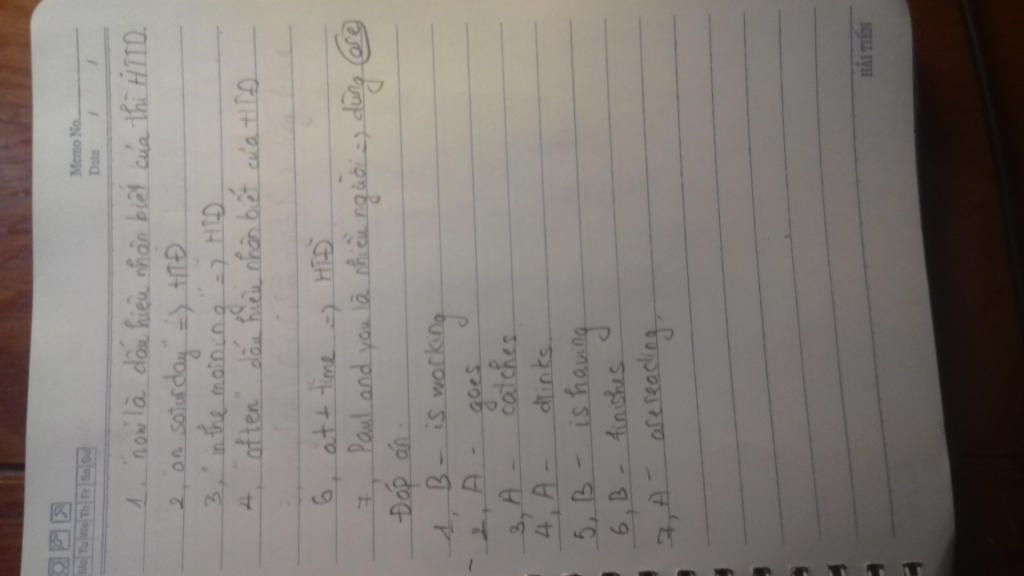 Memo No.
Date / /
Mo Tu We Th Fr Sa Su
1, "now là dấu hiệu nhận biết của thì HTTD.
2, "on saturday" => HTĐ
3, "in the morning" => HTĐ
4, "often" dấu hiệu nhận biết của HTĐ
6, at + time => HTĐ
7, Paul and you là nhiều người => dùng are
Đáp án.
1, B - is working
2, A - goes
3, A - catches
4, A - drinks
5, B - is having
6, B - finishes
7, A - are reading.
HẢI TIẾN